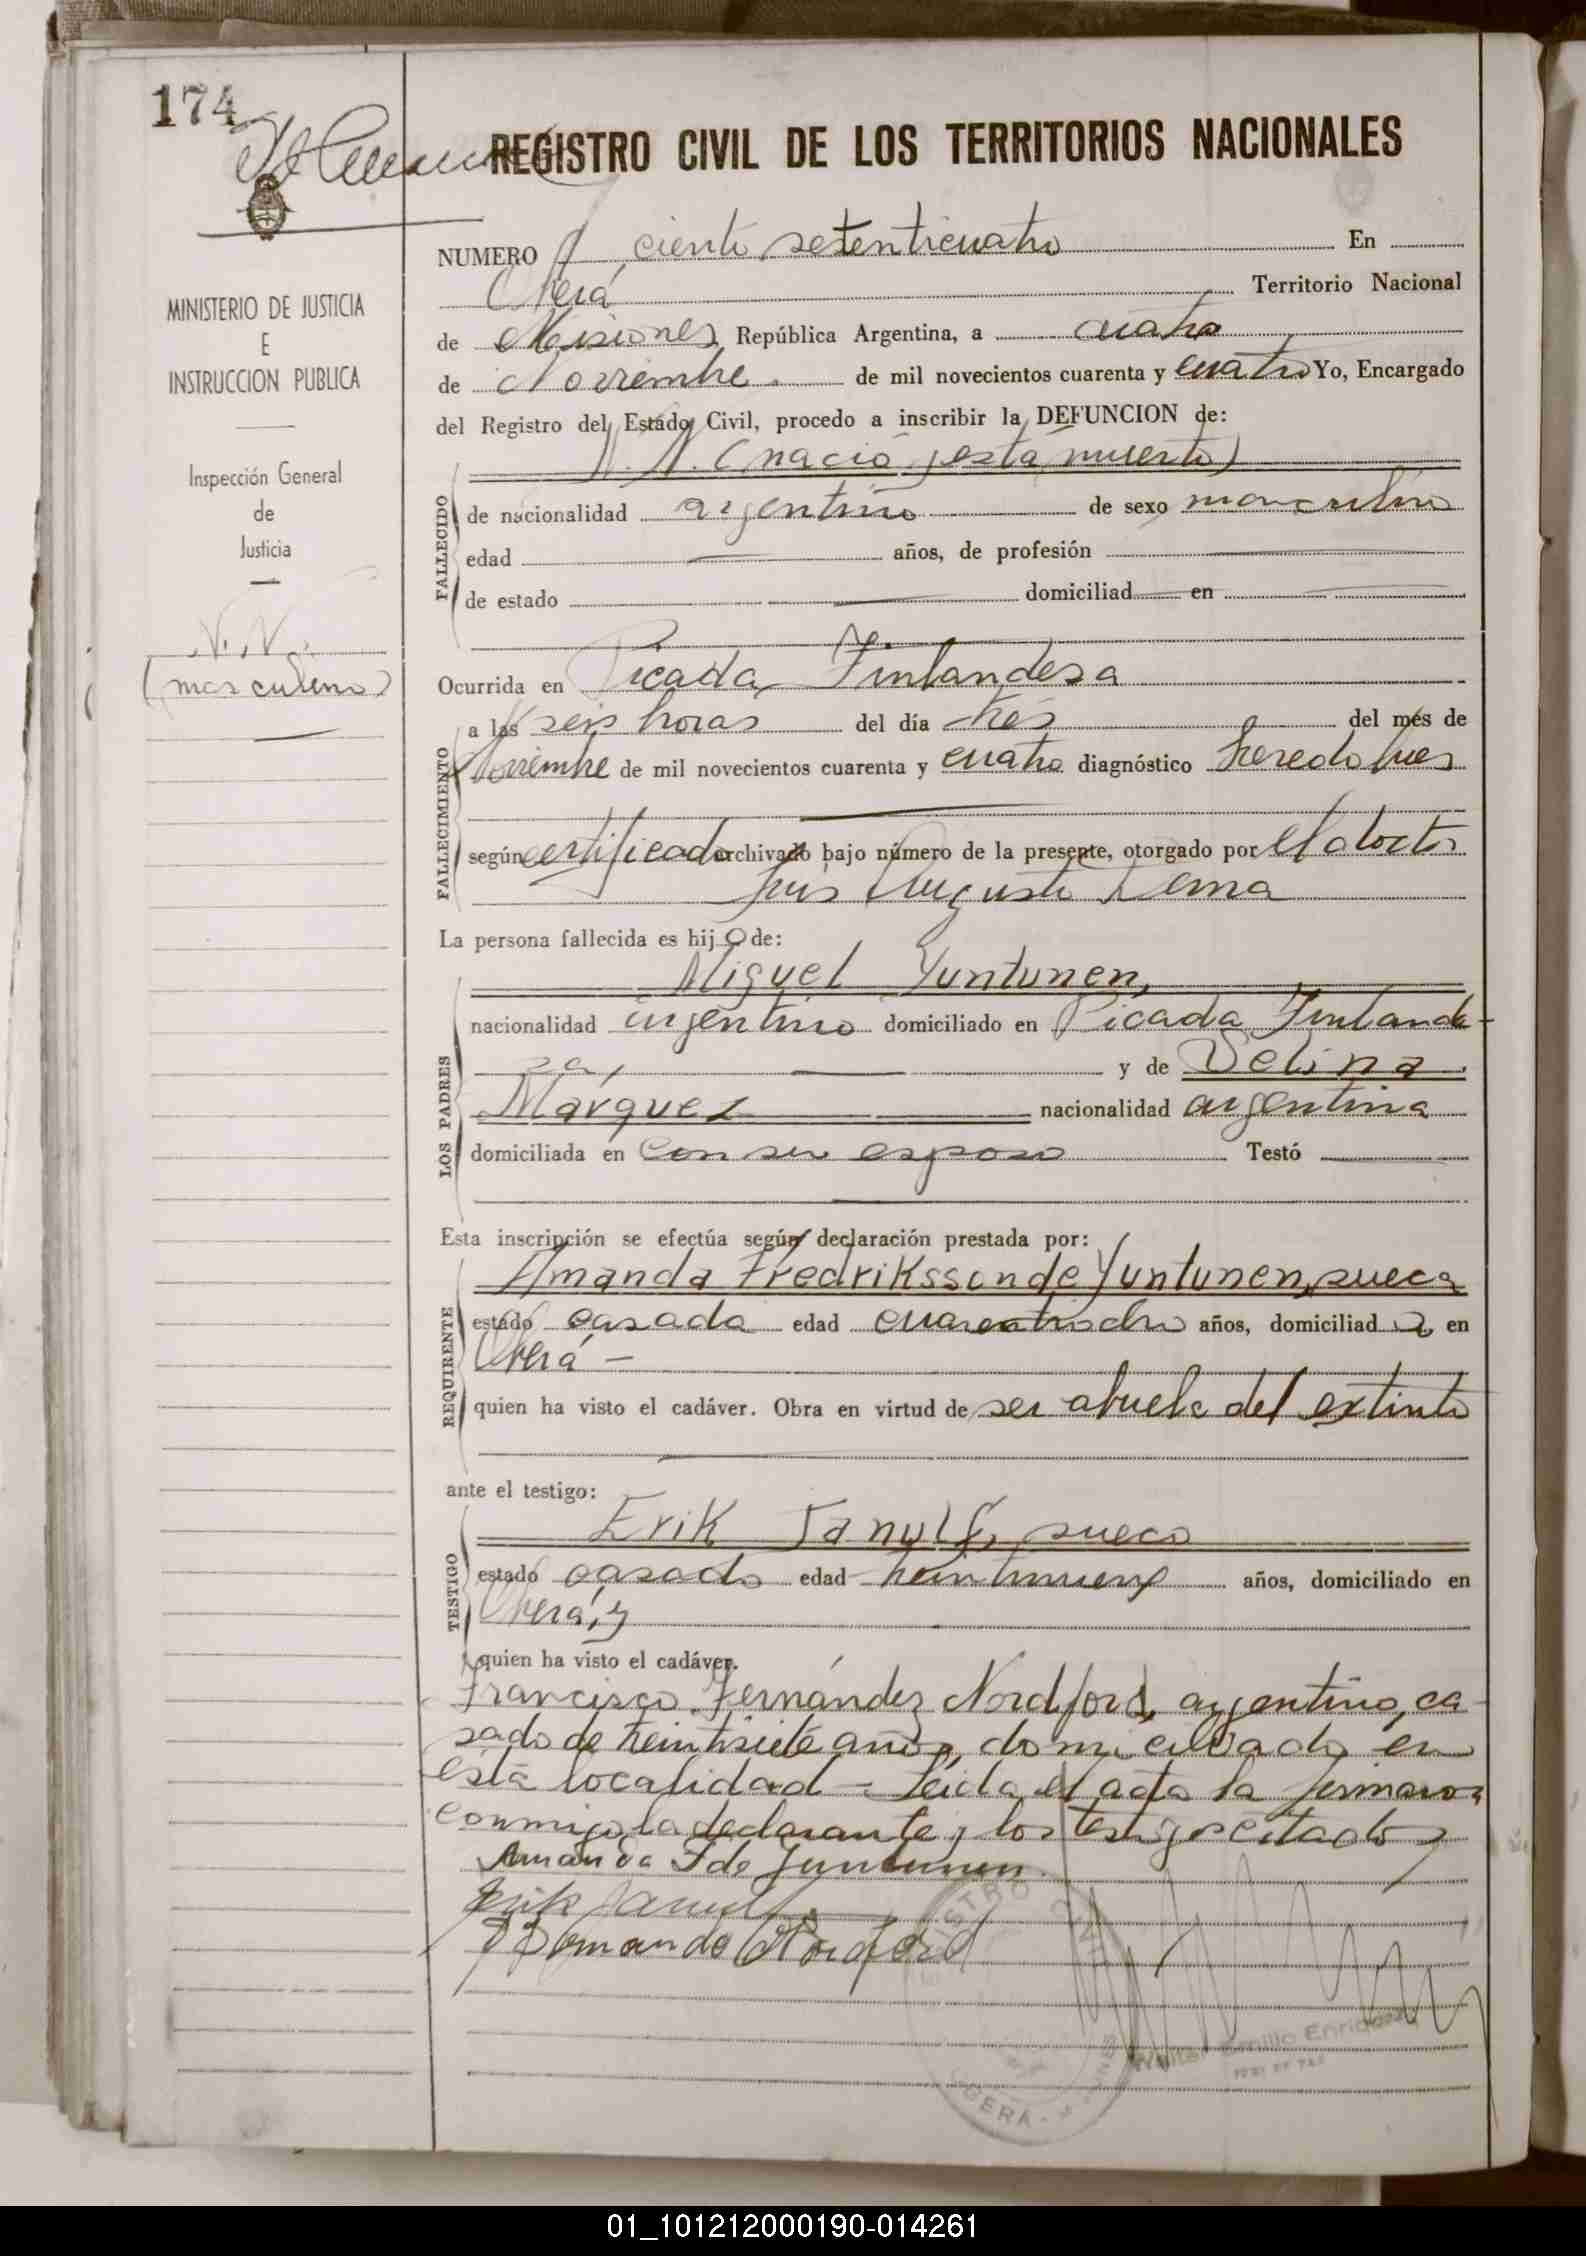 174
REGISTRO CIVIL DE LOS TERRITORIOS NACIONALES
MINISTERIO DE JUSTICIA
E
INSTRUCCION PUBLICA
Inspección General
de
Justicia
N. N.
(masculino)
NUMERO ciento setenticuatro En
Oberá Territorio Nacional
de Misiones República Argentina, a cuatro
de Noviembre. de mil novecientos cuarenta y cuatro Yo, Encargado
del Registro del Estado Civil, procedo a inscribir la DEFUNCION de:
N. N. (nació y está muerto)
FALLECIDO
de nacionalidad argentino de sexo masculino
edad años, de profesión
de estado domiciliad en
Ocurrida en Picada Finlandesa
FALLECIMIENTO
a las seis horas del día tres del mes de
Noviembre de mil novecientos cuarenta y cuatro diagnóstico heredo lues
según certificado archivado bajo número de la presente, otorgado por el doctor
Luis Augusto Lema
La persona fallecida es hijo de:
LOS PADRES
Miguel Yuntunen,
nacionalidad argentino domiciliado en Picada Finlande-
sa, y de Delina
Marquez nacionalidad argentina
domiciliada en con su esposo Testó
Esta inscripción se efectúa según declaración prestada por:
REQUIRENTE
Amanda Fredriksson de Yuntunen, sueca
estado casada edad años, domiciliada en
Oberá -
quien ha visto el cadáver. Obra en virtud de ser abuela del extinto
ante el testigo:
TESTIGO
Erik Janulf, sueco
estado casado edad treintinueve años, domiciliado en
Oberá, y
quien ha visto el cadáver.
Francisco Fernández Nordford, argentino, ca-
sado de treintisiete años, domiciliado en
esta localidad - Leida el acta la firmaron
conmigo la declarante y los testigos citados
Amanda F de Yuntunen.
Erik
Fernando Nordford
REGISTRO CIVIL
OBERA - MISIONES
Walter Emilio Enriquez
JUEZ DE PAZ
01_101212000190-014261